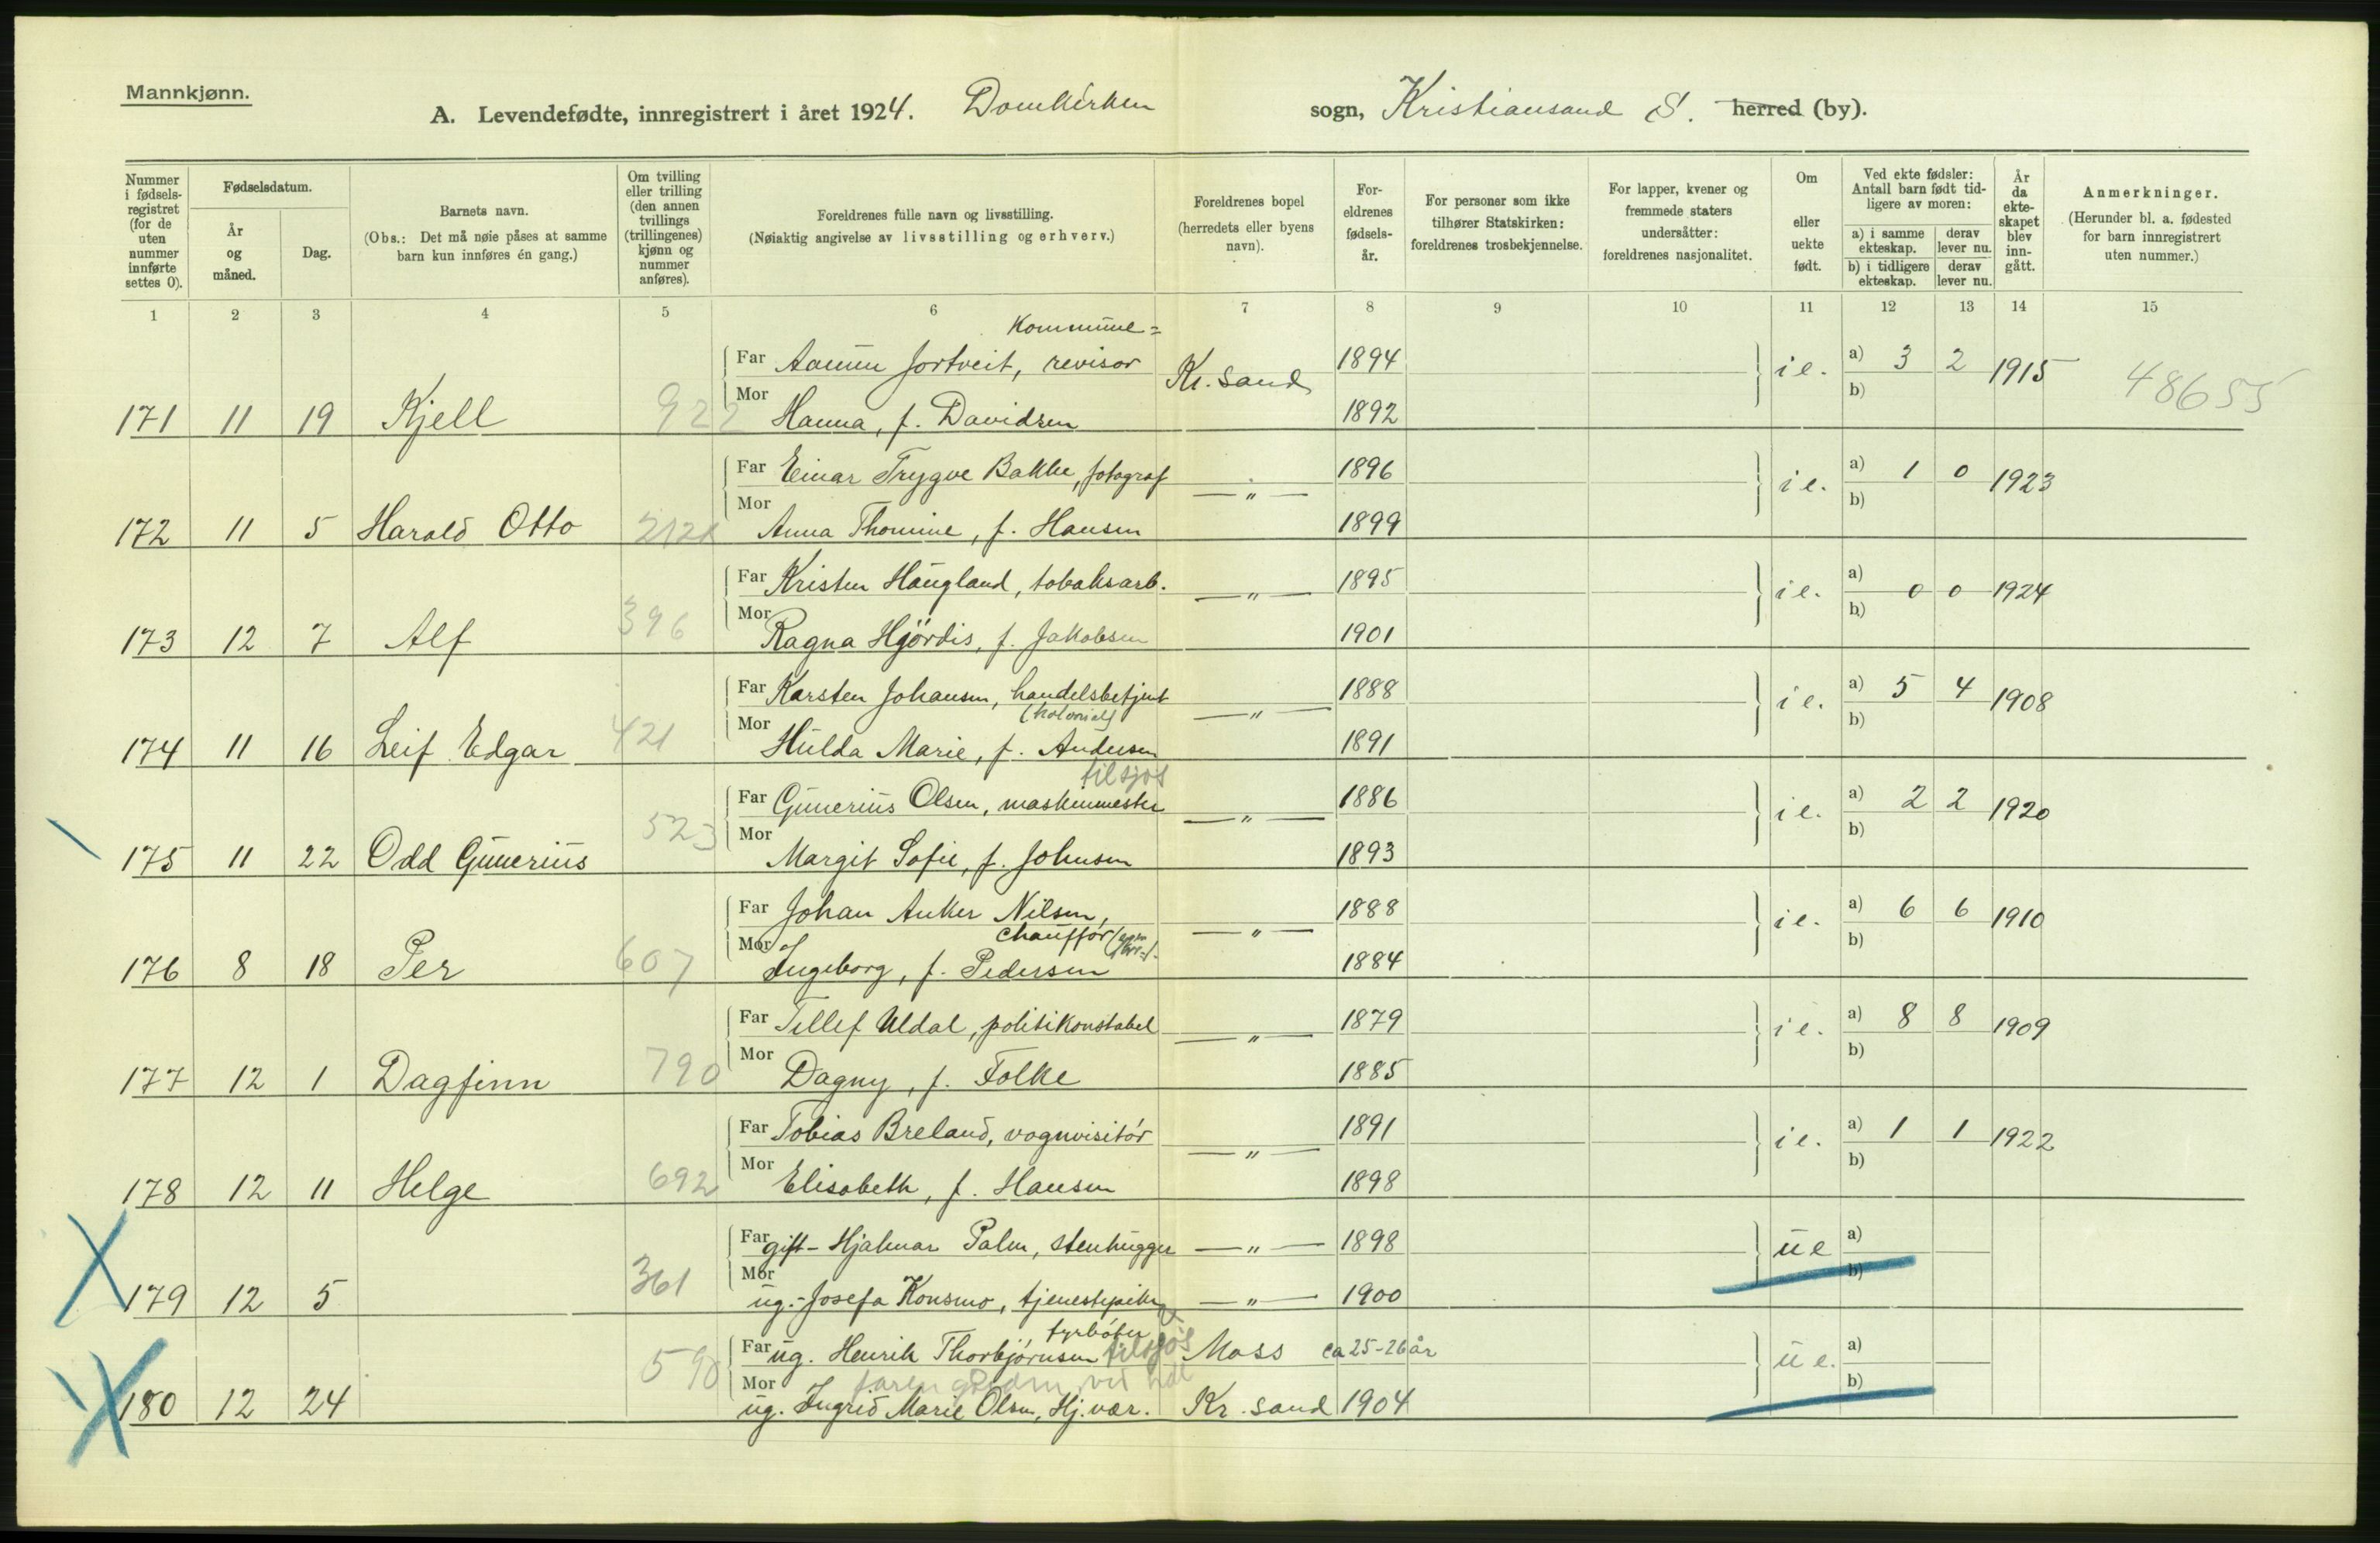 Mannkjønn.
A. Levendefødte, innregistrert i året 1924. Domkirken sogn, Kristiansand S. herred (by).
Nummer i fødsels-registret (for de uten nummer innførte settes 0).
Fødselsdatum.
År og måned.
Dag.
Barnets navn.
(Obs.: Det må nøie påses at samme barn kun innføres én gang.)
Om tvilling eller trilling (den annen tvillings (trillingenes) kjønn og nummer anføres).
Foreldrenes fulle navn og livsstilling.
(Nøiaktig angivelse av livsstilling og erhverv.)
Foreldrenes bopel (herredets eller byens navn).
For-eldrenes fødsels-år.
For personer som ikke tilhører Statskirken: foreldrenes trosbekjennelse.
For lapper, kvener og fremmede staters undersåtter: foreldrenes nasjonalitet.
Om eller uekte født.
Ved ekte fødsler: Antall barn født tid-ligere av moren:
a) i samme ekteskap. derav lever nu.
b) i tidligere ekteskap. derav lever nu.
År da ekte-skapet blev inn-gått.
Anmerkninger.
(Herunder bl. a. fødested for barn innregistrert uten nummer.)
1 2 3 4 5 6 7 8 9 10 11 12 13 14 15
Kommune=
Far Aamun Jortveit, revisor Kr. sand 1894 i e. a) 3 2 1915 48655
171 11 19 Kjell 922 Mor Hanna, f. Davidsen 1892 b)
Far Einar Trygve Bakke, fotograf — " — 1896 i e. a) 1 0 1923
172 11 5 Harald Otto 2121 Mor Anna Thomine, f. Hansen 1899 b)
Far Kristen Haugland, tobaksarb. — " — 1895 i e. a) 0 0 1924
173 12 7 Alf 396 Mor Ragna Hjördis, f. Jakobsen 1901 b)
Far Karsten Johansen, handelsbetjent — " — 1888 i e. a) 5 4 1908
(kolonial)
174 11 16 Leif Edgar 421 Mor Hulda Marie, f. Andersen 1891 b)
tilsjøs
Far Gunerius Olsen, maskinmester — " — 1886 i e. a) 2 2 1920
175 11 22 Odd Gunerius 523 Mor Margit Sofie, f. Johnsen 1893 b)
Far Johan Anker Nilsen, — " — 1888 i e. a) 6 6 1910
chauffør
176 8 18 Per 607 Mor Ingeborg, f. Pedersen 1884 b)
Far Tellef Uldal, politikonstabel — " — 1879 i e. a) 8 8 1909
177 12 1 Dagfinn 790 Mor Dagny, f. Folke 1885 b)
Far Tobias Breland, vognvisitør — " — 1891 i e. a) 1 1 1922
178 12 11 Helge 692 Mor Elisabeth, f. Hansen 1898 b)
Far gift - Hjalmar Palm, stenhugger — " — 1898 u e a)
179 12 5 361 Mor ug.- Josefa Konsmo, tjenestepike — " — 1900 b)
fyrbøter
Far ug. Henrik Thorbjørnsen tilsjøs Moss ca 25-26 år u e. a)
180 12 24 590 Mor ug. Ingrid Marie Olsen, Hj. vær. Kr. sand 1904 b)